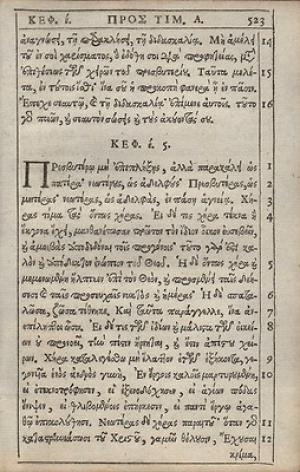 ΚΕΦ. έ. ΠΡΟΣ ΤΙΜ. Α. 523
ἀναγνώσει, τῇ παρακλήσει, τῇ διδασκαλίᾳ. Μὴ ἀμέλει 14
τοῦ ἐν σοὶ χαρίσματος, ὃ ἐδόθη σοι διὰ προφητείας, μετ'
ἐπιθέσεως τῶν χειρῶν τοῦ πρεσβυτερίου. Ταῦτα μελέ- 15
τα, ἐν τούτοις ἴσθι· ἵνα σου ἡ προκοπὴ φανερὰ ᾖ ἐν πᾶσιν.
Ἔπεχε σεαυτῷ, καὶ τῇ διδασκαλίᾳ· ἐπίμενε αὐτοῖς· τοῦτο 16
γὰρ ποιῶν, καὶ σεαυτὸν σώσεις καὶ τοὺς ἀκούοντάς σου.
ΚΕΦ. έ. 5.
Πρεσβυτέρῳ μὴ ἐπιπλήξῃς, ἀλλὰ παρακάλει ὡς 1
πατέρα· νεωτέρους, ὡς ἀδελφούς· Πρεσβυτέρας, ὡς 2
μητέρας· νεωτέρας, ὡς ἀδελφὰς, ἐν πάσῃ ἁγνείᾳ. Χή- 3
ρας τίμα τὰς ὄντως χήρας. Εἰ δέ τις χήρα τέκνα ἢ 4
ἔκγονα ἔχει, μανθανέτωσαν πρῶτον τὸν ἴδιον οἶκον εὐσεβεῖν,
καὶ ἀμοιβὰς ἀποδιδόναι τοῖς προγόνοις· τοῦτο γάρ ἐστι κα-
λὸν καὶ ἀπόδεκτον ἐνώπιον τοῦ Θεοῦ. Ἡ δὲ ὄντως χήρα καὶ 5
μεμονωμένη ἤλπικεν ἐπὶ τὸν Θεὸν, καὶ προσμένει ταῖς δεή-
σεσι καὶ ταῖς προσευχαῖς νυκτὸς καὶ ἡμέρας· Ἡ δὲ σπατα- 6
λῶσα, ζῶσα τέθνηκε. Καὶ ταῦτα παράγγελλε, ἵνα ἀν- 7
επίληπτοι ὦσιν. Εἰ δέ τις τῶν ἰδίων καὶ μάλιστα τῶν οἰκεί- 8
ων οὐ προνοεῖ, τὴν πίστιν ἤρνηται, καὶ ἔστιν ἀπίστου χεί-
ρων. Χήρα καταλεγέσθω μὴ ἔλαττον ἐτῶν ἑξήκοντα, γε- 9
γονυῖα ἑνὸς ἀνδρὸς γυνὴ, Ἐν ἔργοις καλοῖς μαρτυρουμένη, 10
εἰ ἐτεκνοτρόφησεν, εἰ ἐξενοδόχησεν, εἰ ἁγίων πόδας
ἔνιψεν, εἰ θλιβομένοις ἐπήρκεσεν, εἰ παντὶ ἔργῳ ἀγα-
θῷ ἐπηκολούθησε. Νεωτέρας δὲ χήρας παραιτοῦ· ὅταν γὰρ 11
καταστρηνιάσωσι τοῦ Χριστοῦ, γαμεῖν θέλουσιν, Ἔχουσαι 12
κρίμα,